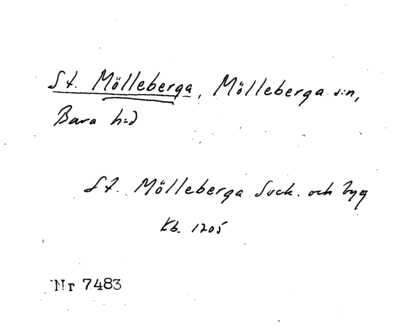 St. Mölleberga, Mölleberga s:n,
Bara h:d
St. Mölleberga Suck. och byg
Kb. 1205
Nr 7483